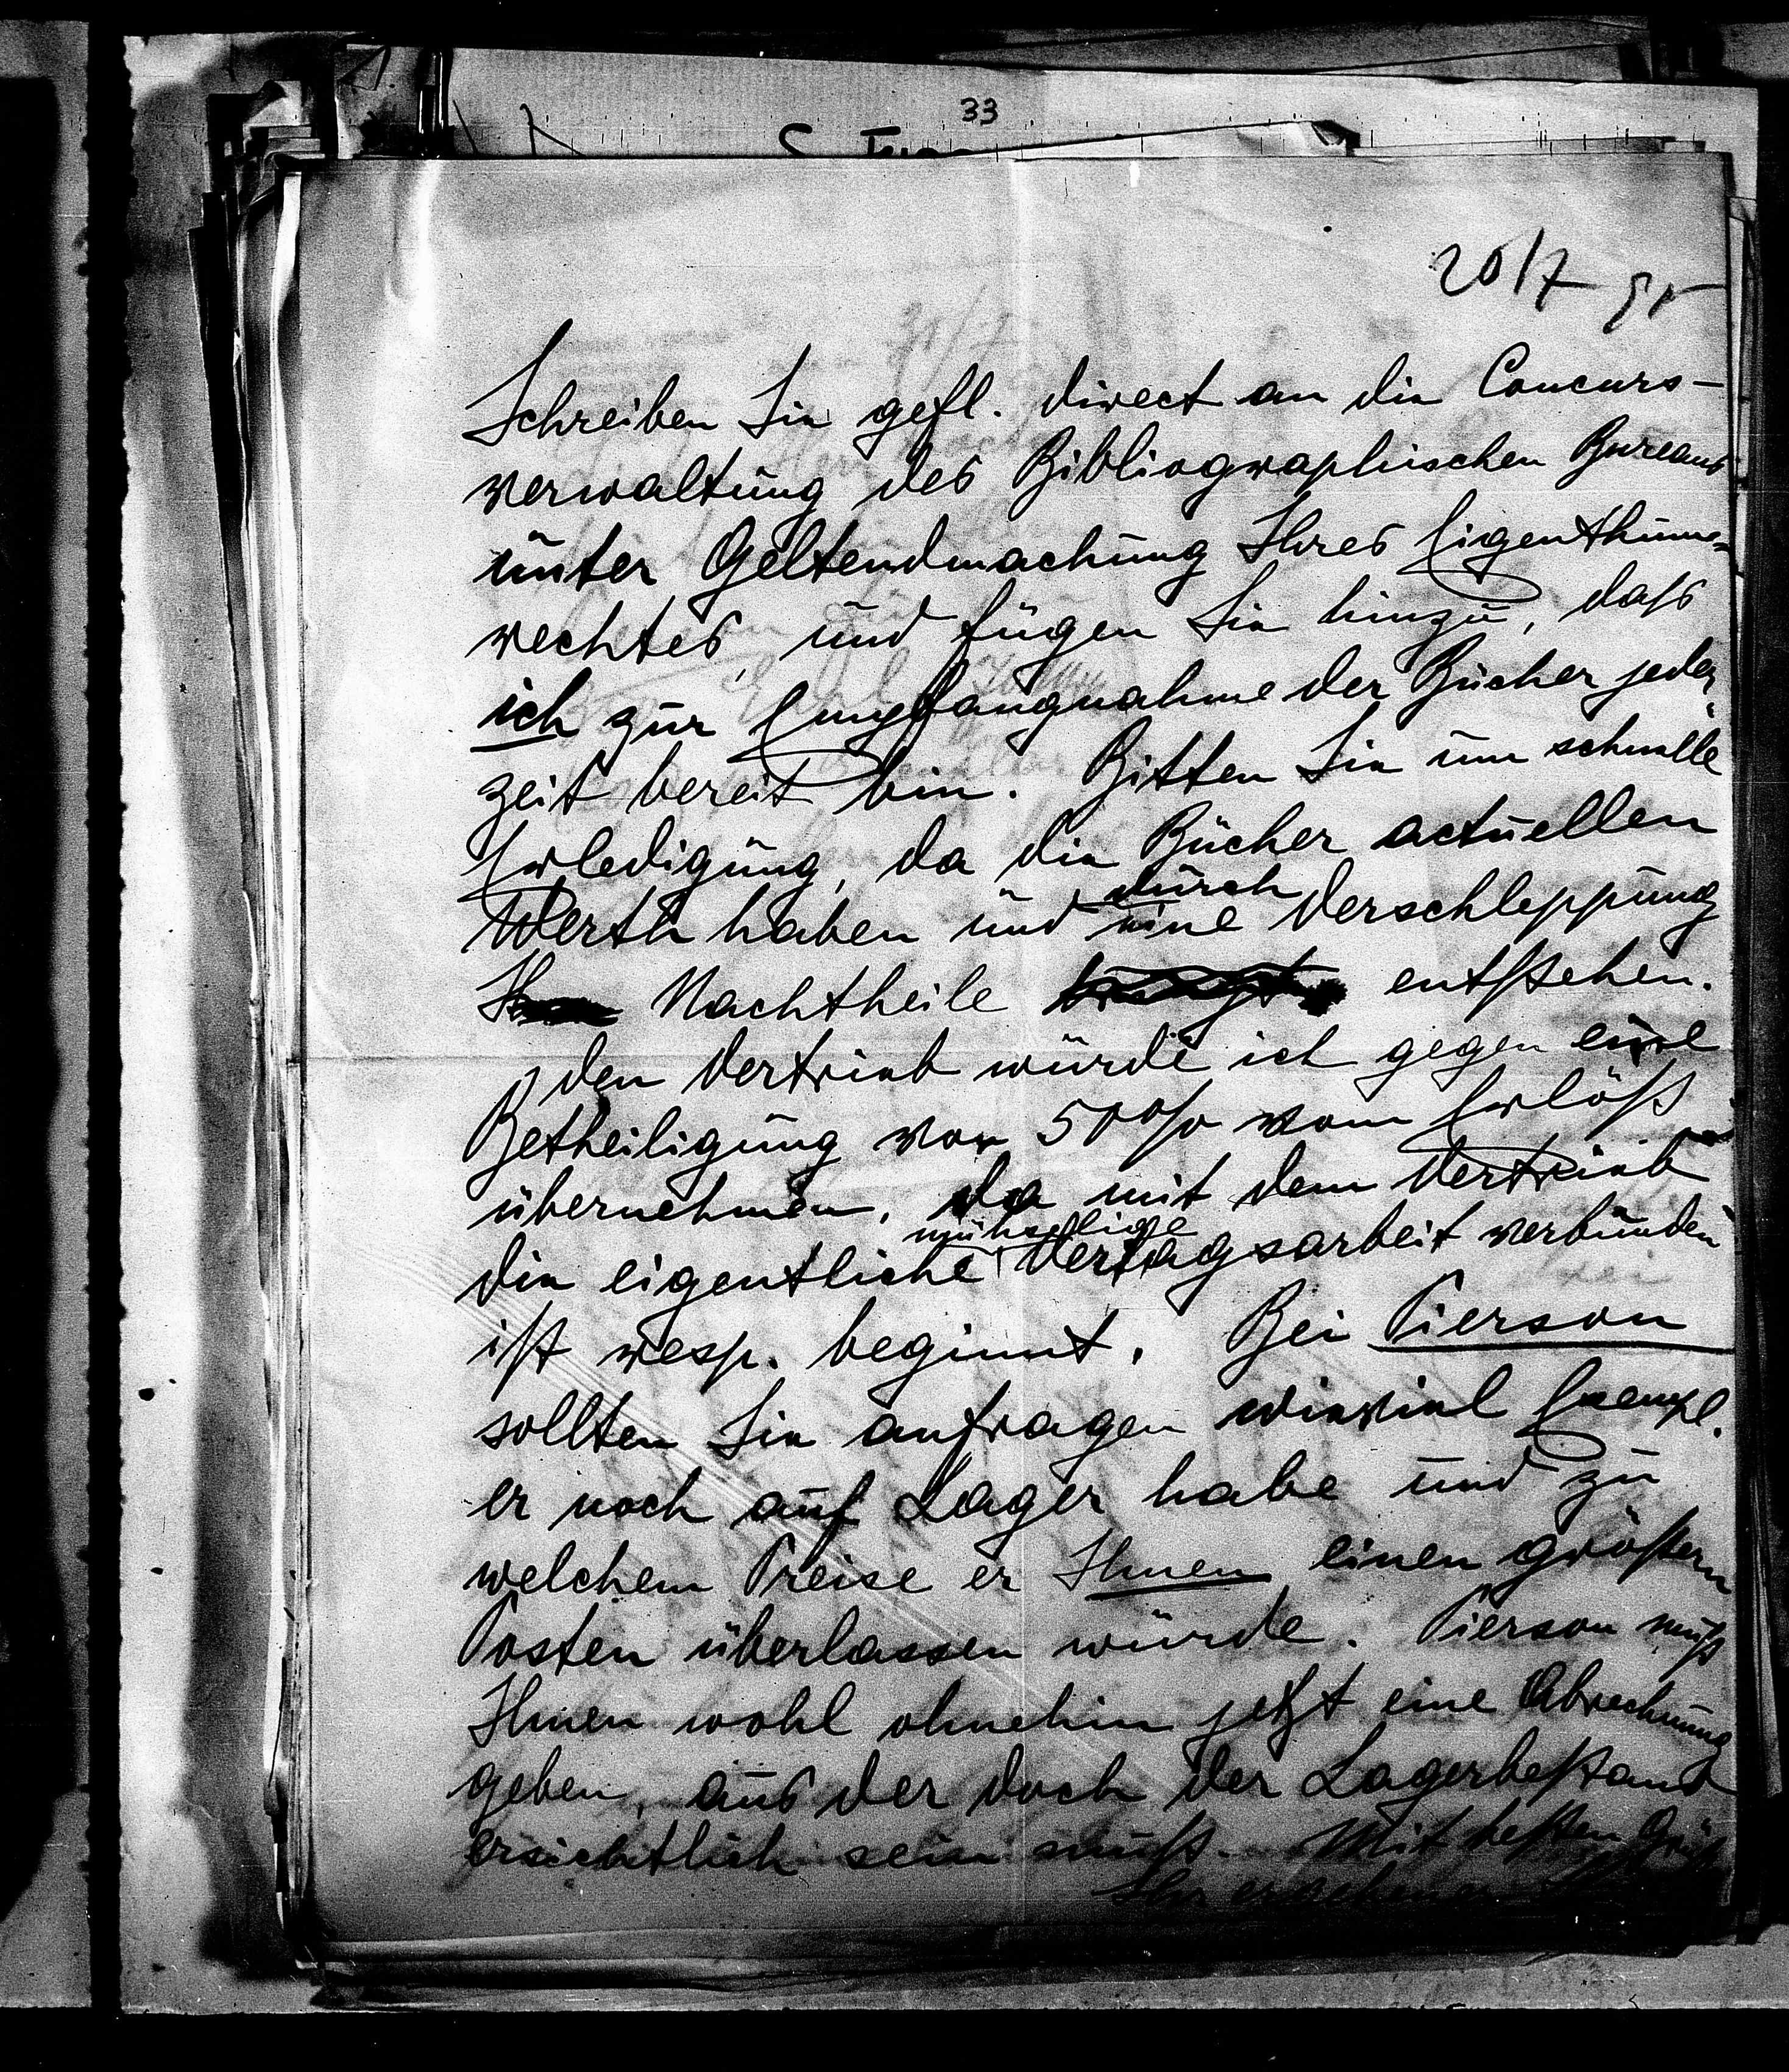 33
20/7
Schreiben Sie gefl. direct an die Concurs-
verwaltung des Bibliographischen Bureaus
unter Geltendmachung Ihres Eigenthums-
rechtes, und fügen Sie hinzu, daß
ich zur Empfangnahme der Bücher jeder
zeit bereit bin. Bitten Sie um schnelle
Erledigung, da die Bücher actuellen
Werth haben und durch eine Verschleppung
Nachtheile entstehen.
Den Vertrieb würde ich gegen eine
Betheiligung von 50% vom Erlöß
übernehmen, da mit dem Vertrieb
die eigentliche mühselige Verlagsarbeit verbunden
ist resp. beginnt. Bei Pierson
sollten Sie anfragen wieviel Exempl.
er noch auf Lager habe und zu
welchem Preise er Ihnen einen größern
Posten überlassen würde. Pierson muß
Ihnen wohl ohnehin jetzt eine Abrechnung
geben, aus der doch der Lagerbestand
ersichtlich sein muß. Mit besten Gruß
Ihr ergebener